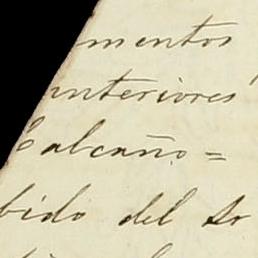 mentos
anteriores
Calcaño =
bido del Sr